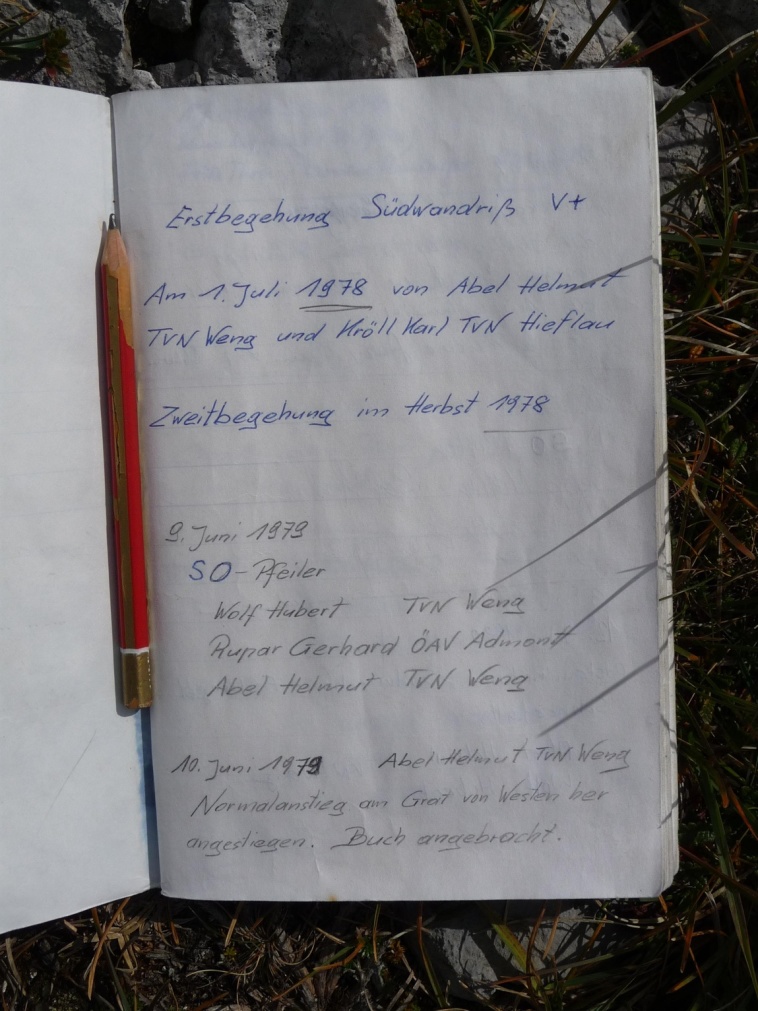 Erstbegehung Südwandriß V+
Am 1. Juli 1978 von Abel Helmut
TVN Weng und Kröll Karl TVN Hieflau
Zweitbegehung im Herbst 1978
9. Juni 1979
SO-Pfeiler
Wolf Hubert TVN Weng
Rupar Gerhard ÖAV Admont
Abel Helmut TVN Weng
10. Juni 1979 Abel Helmut TVN Weng
Normalanstieg am Grat von Westen her
angestiegen. Buch angebracht.